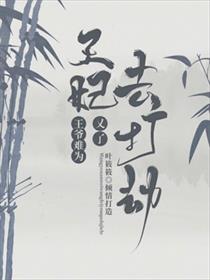 王妃
去打劫
又了
王爷难为
叶筱筱◎倾情打造